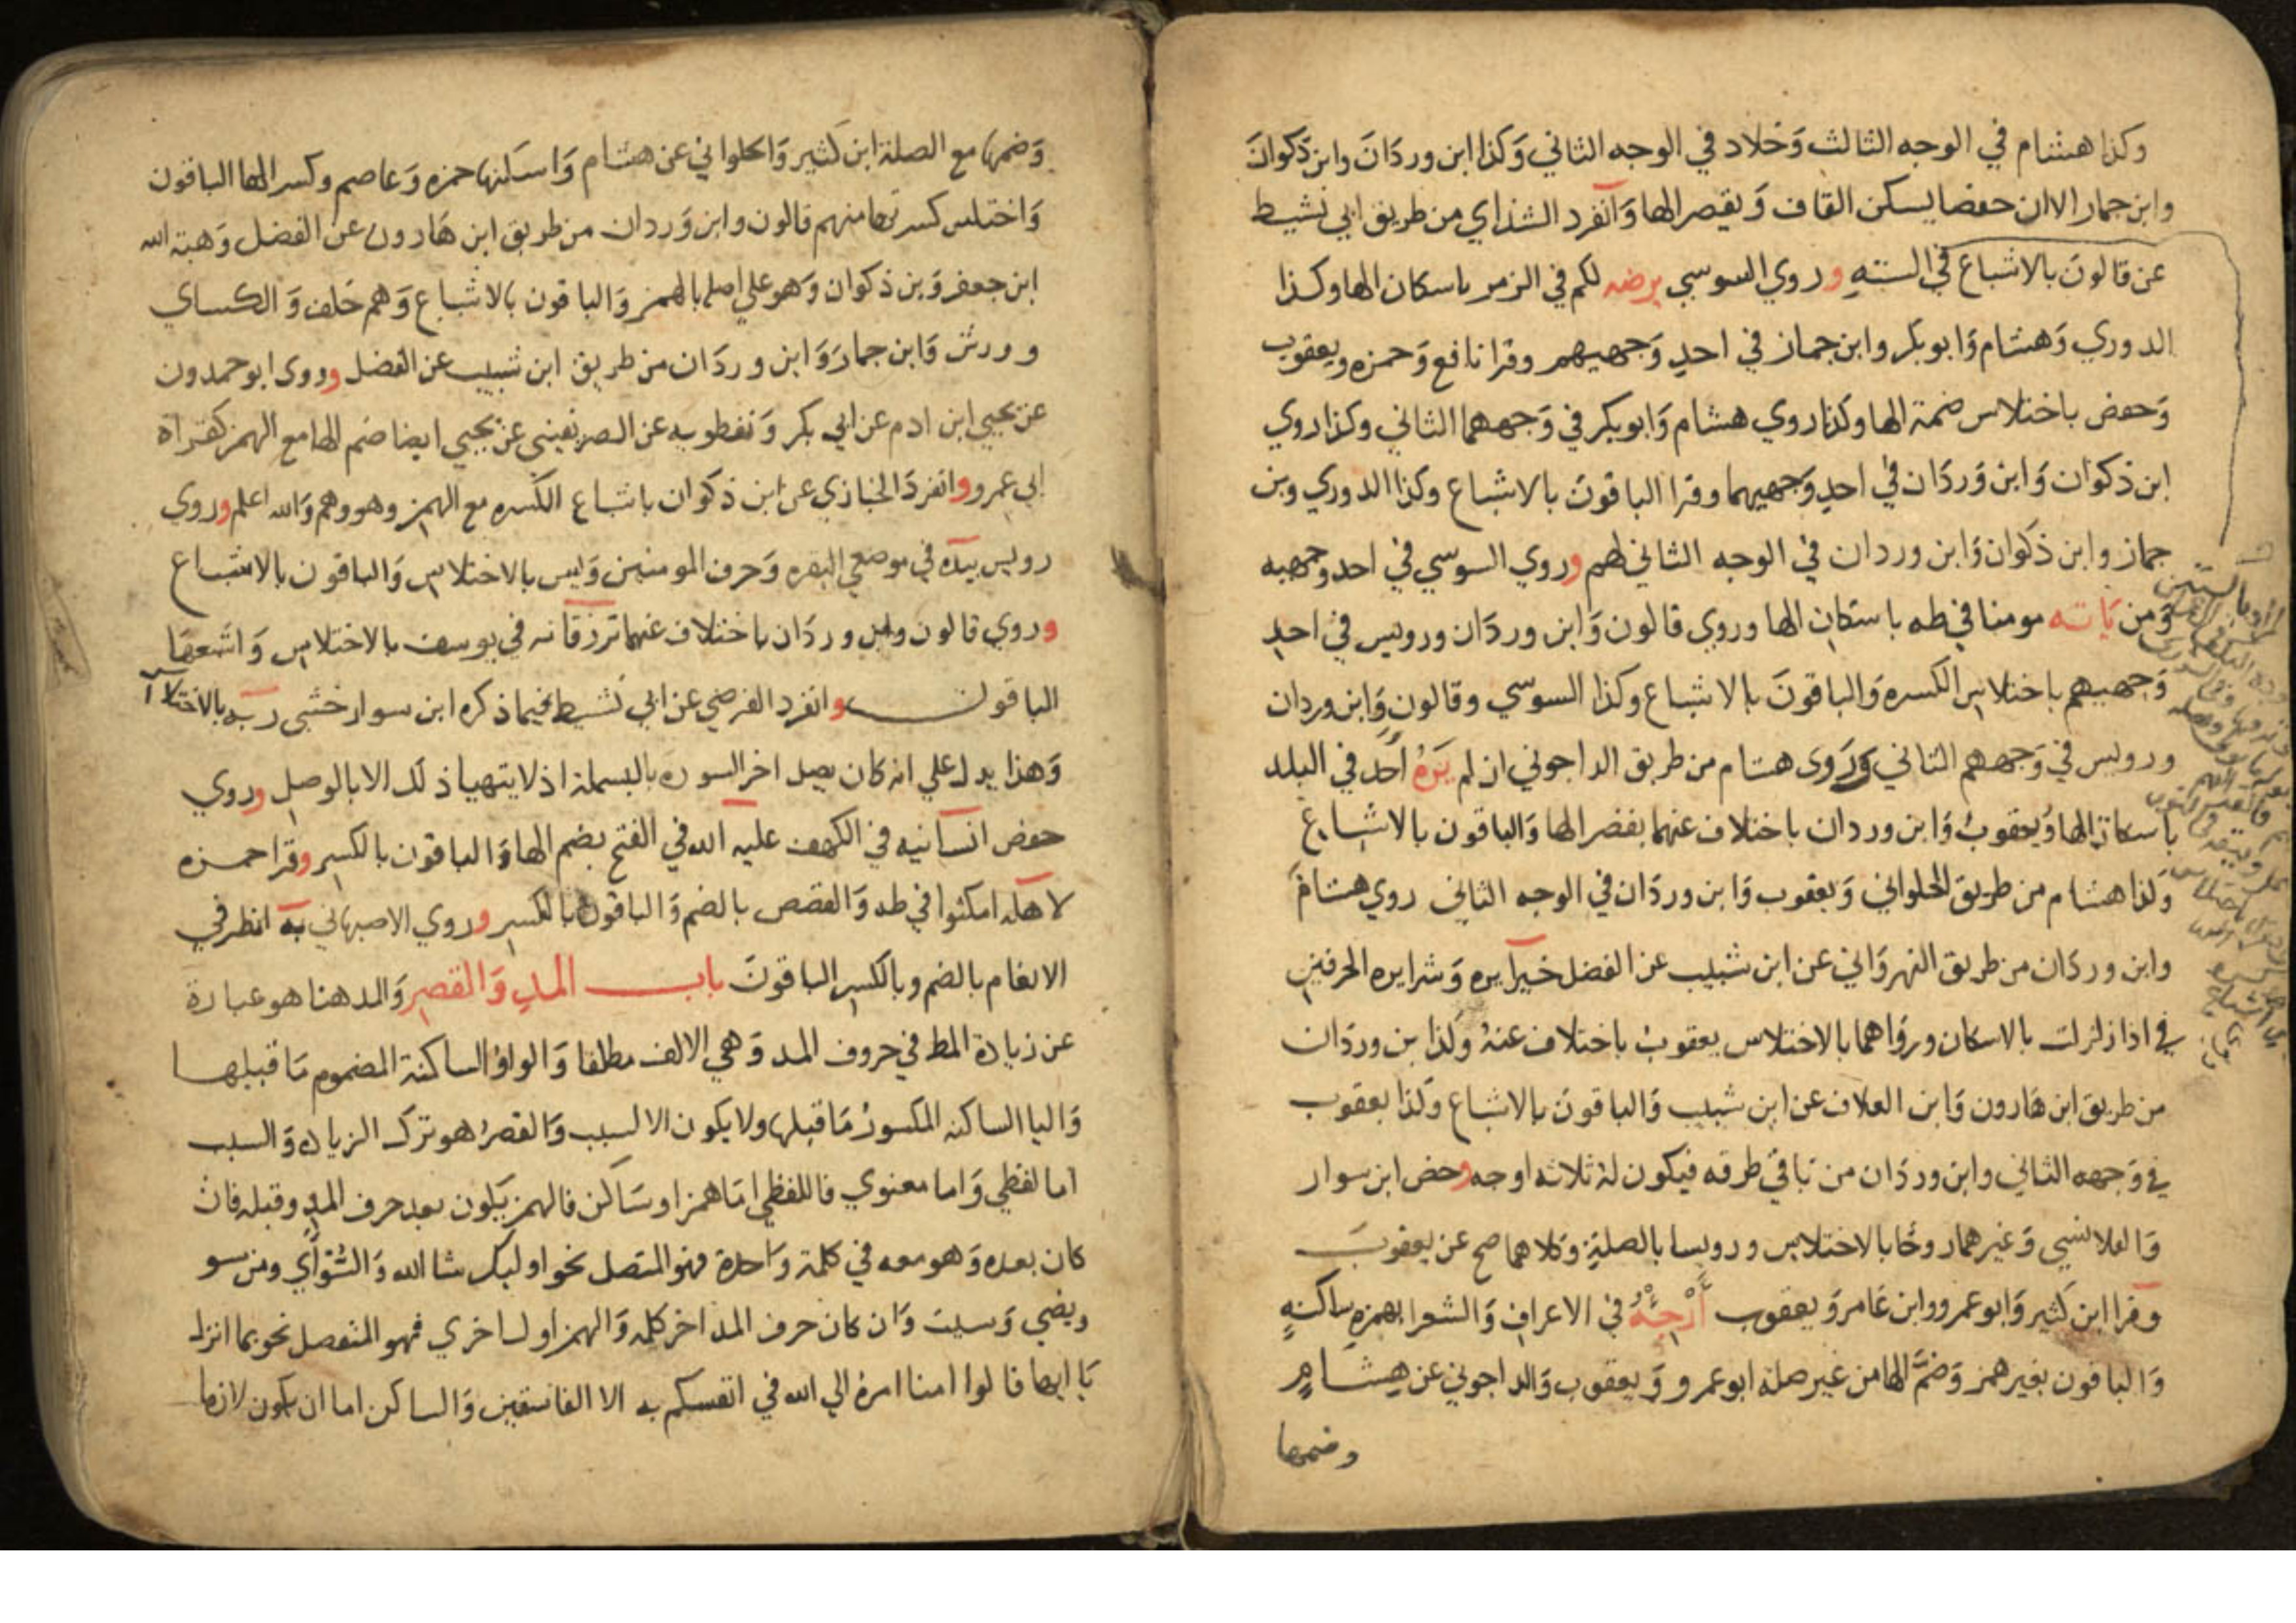 وكذا هشام في الوجه الثالث وَخلاد في الوجه الثاني وَكذا ابن وردَانَ وابن ذكوانَ
وابن جماز الا ان حفصا يسكن القاف وَيقصر الها وَانفرد الشذاي من طريق ابي نشيط
عن قالونَ بالاشباع في الستةِ وروي السوسي يرضه لكم في الزمر باسكان الها وكذا
الدوري وَهشام وَابو بكر وابن جماز في احدِ وَجهيهم وقرا نافع وَحمزه ويعقوب
وَحفص باختلاس ضمة الها وكذا روي هشام وَابو بكر في وَجههما الثاني وكذا روي
ابن ذكوان وَابن وَردَان في احدِ وَجهيهما وقرا الباقونَ بالاشباع وكذا الدوري وبن
جماز وابن ذكوان وَابن وردان في الوجه الثاني لهم وروي السوسي في احد وجهيه
وَمن يَاته مومنا في طه باسكان الها وروي قالون وَابن وردَان ورويس في احدِ
وَجهيهم باختلاس الكسره وَالباقونَ بالاشباع وكذا السوسي وقالون وَابن وردان
ورويس في وَجههم الثاني وَرَوى هشام من طريق الداجوني ان لم يَرَهُ أحَد في البلد
باسكان الها وَيعقوبُ وَابن وردان باختلاف عنهما بقصر الها وَالباقون بالاشباع
وَكذا هشام من طريق الحلواني وَيعقوب وَابن وردَان في الوجه الثاني روي هشام
وابن وردَان من طريق النهروَاني عن ابن شبيب عن الفضل خيرا يره وَشرا يره الحرفين
في اذا زلزلت بالاسكان وروَاهما بالاختلاس يعقوبُ باختلاف عنهُ وَكذا بن وردَان
من طريق ابن هَارون وَابن العلاف عن ابن شبيب وَالباقونَ بالاشباع وكذا يعقوب
في وَجهه الثاني وابن وردَان من بَاقي طرقه فيكون لهُ ثلاثه اوجه وخص ابن سوار
وَالقلانسي وَغيرهما روحًا بالاختلاس ورويسا بالصلةِ وَكلاهما صح عن يعقوبَ
وقرا ابن كثير وَابو عمرو وابن عَامر وَيعقوب أَرْجِئْهُ في الاعراف وَالشعرا بهمزه ساكنةٍ
وَالباقون بغير همز وَضَمَّ الها من غير صلة ابو عمرو وَيعقوب وَالداجوني عن هشام
وضمها
وَضمها مع الصلة ابن كَثير وَالحلواني عن هشام وَاسكنها حمزه وَعاصم وكسر الها الباقون
وَاختلس كسرتها منهم قالون وابن وَردان من طريق ابن هَارون عن الفضل وَهبة الله
ابن جعفر وَبن ذكوان وَهو علي اصله بالهمز وَالباقون بالاشباع وَهم خلف وَالكساي
وورش وَابن جماز وَابن وردَان من طريق ابن شبيب عن الفضل وروى ابو حمدون
عن يحيي ابن ادم عن ابي بكر وَنفطويه عن الصريفيني عن يحيي ايضا ضم الها مع الهمز كقراة
ابي عمرو وانفردَ الخبازي عن ابن ذكوان باشباع الكسره مع الهمز وهو وهم وَالله اعلم وروي
رويس بيده في موضعي البقره وَحرف المومنين وَيس بالاختلاس وَالباقون بالاشباع
وروي قالون وابن وردَان باختلاف عنهما ترزقانه في يوسف بالاختلاس وَاشبعها
الباقون وانفرد الفرضي عن ابي نَشيط فيما ذكره ابن سوار خشي ربه بالاختلاس
وَهذا يدل علي انه كان يصل اخر السوره بالبسملة اذ لا يتهيا ذلك الا بالوصل وروي
حفص انسانيه في الكهف عليه الله في الفتح بضم الها وَالباقون بالكسر وقرا حمزه
لاهله امكثوا في طه وَالقصص بالضم وَالباقون بالكسر وروي الاصبهاني به انظر في
الانعام بالضم وبالكسر الباقونَ باب المدِ وَالقصر وَالمد هنا هو عبارة
عن زيادة المط في حروف المد وَهي الالف مطلقا وَالواوُ الساكنة المضموم مَا قبلها
وَاليا الساكنه المكسورُ مَا قبلها ولا يكون الا لسبب وَالقصرُ هو ترك الزياده وَالسبب
اما لفظي وَاما معنوي فاللفظي امَا همز او سَاكن فالهمز يَكون بعد حرف المدِ وقبله فان
كان بعده وَهو معه في كلمة وَاحدة فهو المتصل نحو اوليك شا الله وَالسُّوْأَي ومن سو
ويضي وَسيت وَان كان حرف المد اخر كلمه وَالهمز اول اخري فهو المنفصل نحو بما انزل
يَا ايها قالوا امنا امره الي الله في انفسكم به الا الفاسقين وَالساكن اما ان يكون لازما